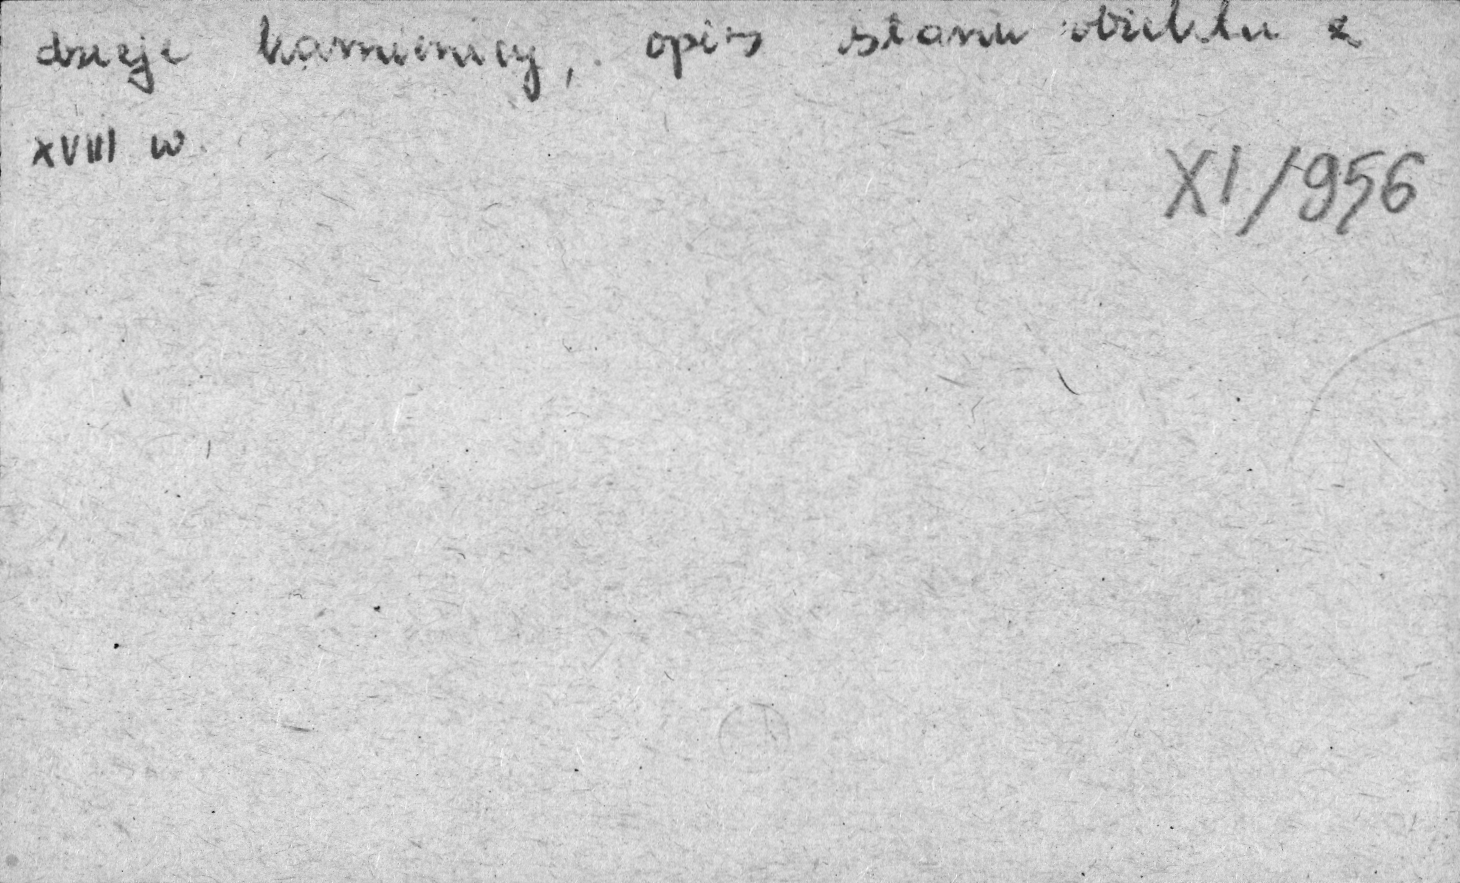 dzieje kamienicy, opis stanu obiektu z
XVIII w.
XI/956